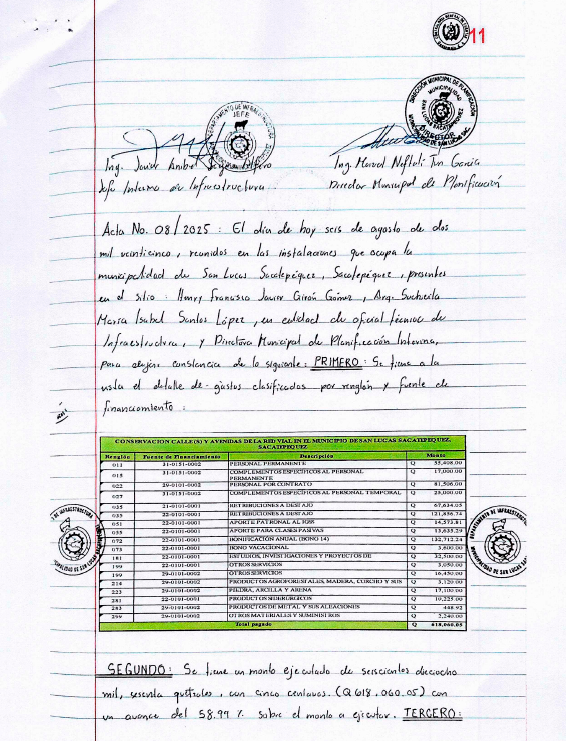 11
Ing. Javier Anibal
Jefe Interno de Infraestructura.
Ing. Marvel Neftali Tun Garcia
Director Municipal de Planificación
DIRECCIÓN MUNICIPAL DE PLANIFICACIÓN
MUNICIPALIDAD
DIRECTOR
JEFE
Acta No. 08/2025 : El día de hoy seis de agosto de dos
mil veinticinco, reunidos en las instalaciones que ocupa la
municipalidad de San Lucas Sacatepéquez, Sacatepéquez, presentes
en el sitio : Henry Francisco Javier Girón Gómez, Arq.
María Isabel Santos López, en calidad de oficial técnico de
Infraestructura, y Directora Municipal de Planificación Interina,
para dejar constancia de lo siguiente: PRIMERO: Se tiene a la
vista el detalle de gastos clasificados por renglón y fuente de
financiamiento :
CONSERVACION CALLE(S) Y AVENIDAS DE LA RED VIAL EN EL MUNICIPIO DE SAN LUCAS SACATEPEQUEZ,
SACATEPEQUEZ
Renglón Fuente de Financiamiento Descripción Monto
011 31-0151-0002 PERSONAL PERMANENTE Q 55,408.00
015 31-0151-0002 COMPLEMENTOS ESPECÍFICOS AL PERSONAL PERMANENTE Q 17,000.00
022 29-0101-0002 PERSONAL POR CONTRATO Q 81,506.00
027 31-0151-0002 COMPLEMENTOS ESPECÍFICOS AL PERSONAL TEMPORAL Q 25,000.00
035 21-0101-0001 RETRIBUCIONES A DESTAJO Q 67,634.05
035 22-0101-0001 RETRIBUCIONES A DESTAJO Q
051 22-0101-0001 APORTE PATRONAL AL IGSS Q 14,573.81
055 22-0101-0001 APORTE PARA CLASES PASIVAS Q
072 22-0101-0001 BONIFICACIÓN ANUAL (BONO 14) Q 132,712.24
073 22-0101-0001 BONO VACACIONAL Q 5,600.00
181 22-0101-0001 ESTUDIOS, INVESTIGACIONES Y PROYECTOS DE Q 22,500.00
199 22-0101-0001 OTROS SERVICIOS Q 5,050.00
199 29-0101-0002 OTROS SERVICIOS Q
214 29-0101-0002 PRODUCTOS AGROFORESTALES, MADERA, CORCHO Y SUS Q 3,120.00
223 29-0101-0002 PIEDRA, ARCILLA Y ARENA Q 17,100.00
281 22-0101-0001 PRODUCTOS SIDERÚRGICOS Q 10,225.00
283 29-0101-0002 PRODUCTOS DE METAL Y SUS ALEACIONES Q 448.92
299 29-0101-0002 OTROS MATERIALES Y SUMINISTROS Q 2,240.00
Total pagado Q 618,060.05
SEGUNDO: Se tiene un monto ejecutado de seiscientos dieciocho
mil, sesenta quetzales, con cinco centavos. (Q 618,060.05) con
un avance del 58.99 % sobre el monto a ejecutar. TERCERO: